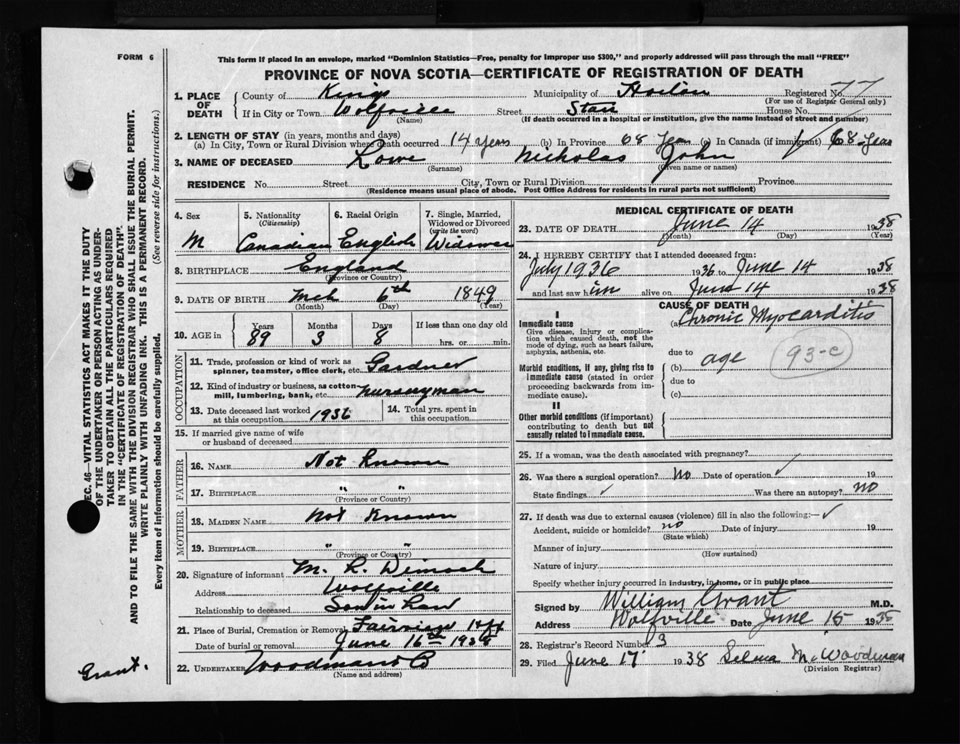 FORM 6
This form if placed in an envelope, marked "Dominion Statistics—Free, penalty for improper use $300," and properly addressed will pass through the mail "FREE"
PROVINCE OF NOVA SCOTIA—CERTIFICATE OF REGISTRATION OF DEATH
1. PLACE OF DEATH
County of Kings Municipality of Registered No. 77
(For use of Registrar General only)
If in City or Town Wolfville Street House No.
(Name) (If death occurred in a hospital or institution, give the name instead of street and number)
2. LENGTH OF STAY (in years, months and days)
(a) In City, Town or Rural Division where death occurred 14 years (b) In Province 68 Years (c) In Canada (if immigrant) 68 Years
3. NAME OF DECEASED Lowe Nicholas John
(Surname) (Given name or names)
RESIDENCE No. Street City, Town or Rural Division Province
(Residence means usual place of abode. Post Office Address for residents in rural parts not sufficient)
4. Sex M
5. Nationality (Citizenship) Canadian
6. Racial Origin English
7. Single, Married, Widowed or Divorced (write the word) Widower
8. BIRTHPLACE England
(Province or Country)
9. DATE OF BIRTH Mch 6th 1849
(Month) (Day) (Year)
10. AGE in Years Months Days If less than one day old
89 3 8 hrs. or min.
OCCUPATION
11. Trade, profession or kind of work as spinner, teamster, office clerk, etc. Gardner
12. Kind of industry or business, as cotton mill, lumbering, bank, etc. nurseryman
13. Date deceased last worked at this occupation 1936
14. Total yrs. spent in this occupation
15. If married give name of wife or husband of deceased
FATHER
16. NAME Not Known
17. BIRTHPLACE " "
(Province or Country)
MOTHER
18. MAIDEN NAME Not Known
19. BIRTHPLACE " "
(Province or Country)
20. Signature of informant M. R.
Address Wolfville
Relationship to deceased Son in Law
21. Place of Burial, Cremation or Removal
Date of burial or removal June 16th 1938
22. UNDERTAKER
(Name and address)
MEDICAL CERTIFICATE OF DEATH
23. DATE OF DEATH June 14 1938
(Month) (Day) (Year)
24. I HEREBY CERTIFY that I attended deceased from:
July 1936 1936 to June 14 1938
and last saw him alive on June 14 1938
CAUSE OF DEATH
I
Immediate cause
Give disease, injury or complication which caused death, not the mode of dying, such as heart failure, asphyxia, asthenia, etc.
(a) Chronic Myocarditis
due to
Morbid conditions, if any, giving rise to immediate cause (stated in order proceeding backwards from immediate cause).
(b) age 93-c
due to
(c)
II
Other morbid conditions (if important) contributing to death but not causally related to immediate cause.
25. If a woman, was the death associated with pregnancy?
26. Was there a surgical operation? no Date of operation 19
State findings Was there an autopsy? no
27. If death was due to external causes (violence) fill in also the following:
Accident, suicide or homicide? no Date of injury 19
(State which)
Manner of injury
(How sustained)
Nature of injury
Specify whether injury occurred in industry, in home, or in public place
Signed by William Grant M.D.
Address Wolfville Date June 15 1938
28. Registrar's Record Number 3
29. Filed June 17 1938 Selma M. Woodman
(Division Registrar)
SEC. 46—VITAL STATISTICS ACT MAKES IT THE DUTY
OF THE UNDERTAKER OR PERSON ACTING AS UNDER-
TAKER TO OBTAIN ALL THE PARTICULARS REQUIRED
IN THE "CERTIFICATE OF REGISTRATION OF DEATH".
AND TO FILE THE SAME WITH THE DIVISION REGISTRAR WHO SHALL ISSUE THE BURIAL PERMIT.
WRITE PLAINLY WITH UNFADING INK. THIS IS A PERMANENT RECORD.
Every item of information should be carefully supplied. (See reverse side for instructions.)
Grant.